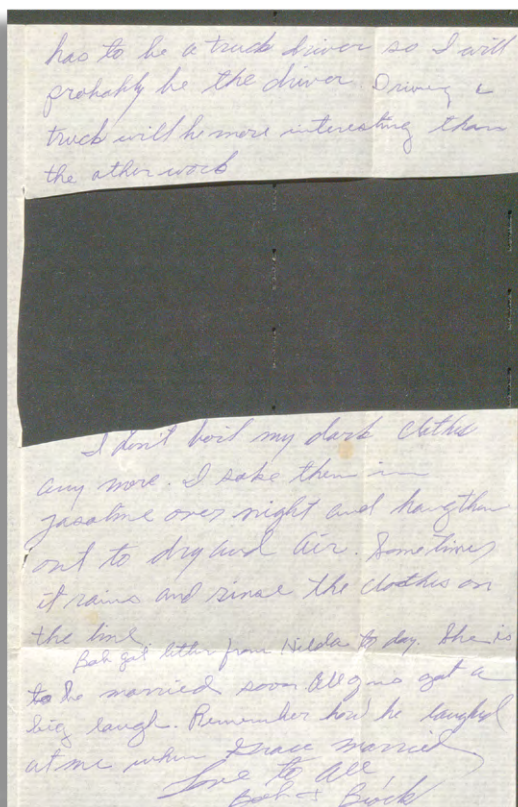 has to be a truck driver so I will
probably be the driver Driving a
truck will be more interesting than
the other work
I don't boil my dark clothes
any more. I soke them in
gasoline over night and hang them
out to dry and air. Sometimes
it rains and rinse the clothes on
the line
Bob got letter from Hilda to day. She is
to be married soon. got a
big laugh. Remember how he laughed
at me when Grace married
Love to All,
Bob &